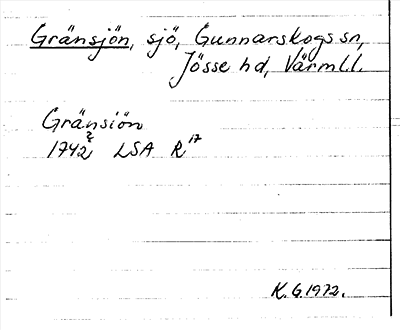 Gränsjön, sjö, Gunnarskogs sn,
Jösse hd, Värml.l.
Gränsiön
1742 ? LSA R 17
K.G.1972.